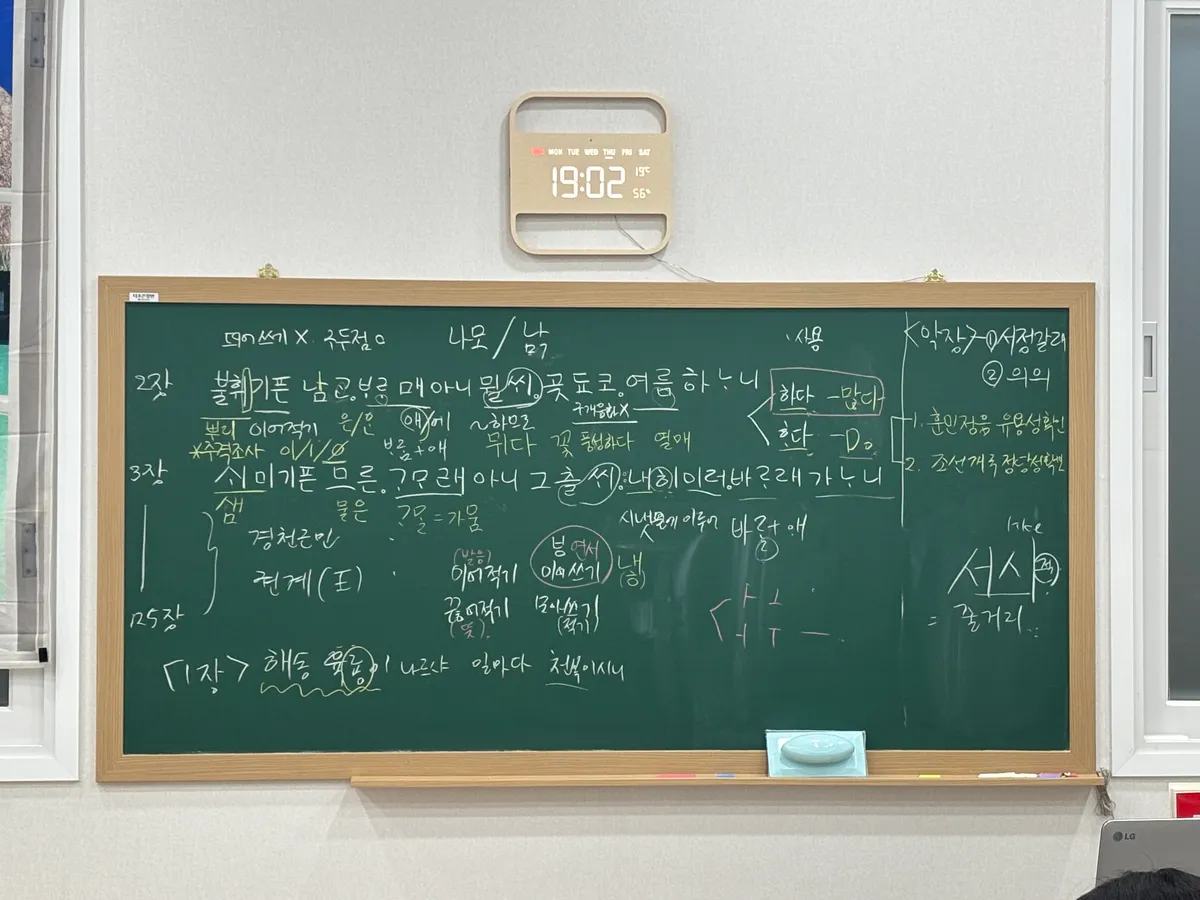 MON TUE WED THU FRI SAT
19:02 19℃
56%
띄어쓰기 X 구두점 O 나모/남ㄱ 사용 <악장> ① 서정갈래
② 의의
2장 불휘기픈 남ᄀᆞᆫ ᄇᆞᄅᆞ매 아니 뮐씨 곶 됴코 여름 하ᄂᆞ니
하다 - 많다
뿌리 이어적기 은/ᄋᆞᆫ 애/에 ~하므로 구개음화X
ᄒᆞ다 - Do
1. 훈민정음 유용성확인
*주격조사 이/ㅣ/∅ ᄇᆞᄅᆞᆷ+애 뮈다 꽃 풍성하다 열매
2. 조선개국 정당성확보
3장 ᄉᆡ미기픈 므른 ᄀᆞᄆᆞ래 아니 그츨씨 내히 이러 바ᄅᆞ래 가ᄂᆞ니
샘 물은 ᄀᆞᄆᆞᆯ=가뭄 시냇물에 이루어 바ᄅᆞᆯ+애
②
경천근민
(발음) ᄫᅠ 연서
이어적기 이어쓰기 내ㅎ
(히)
끊어적기 모아쓰기
(뜻) (적기)
ㅏ ㅗ
ㅓ ㅜ ㅡ
125장
like
서사 적
= 줄거리
<1장> 해동 육룡이 나르샤 일마다 천복이시니
LG